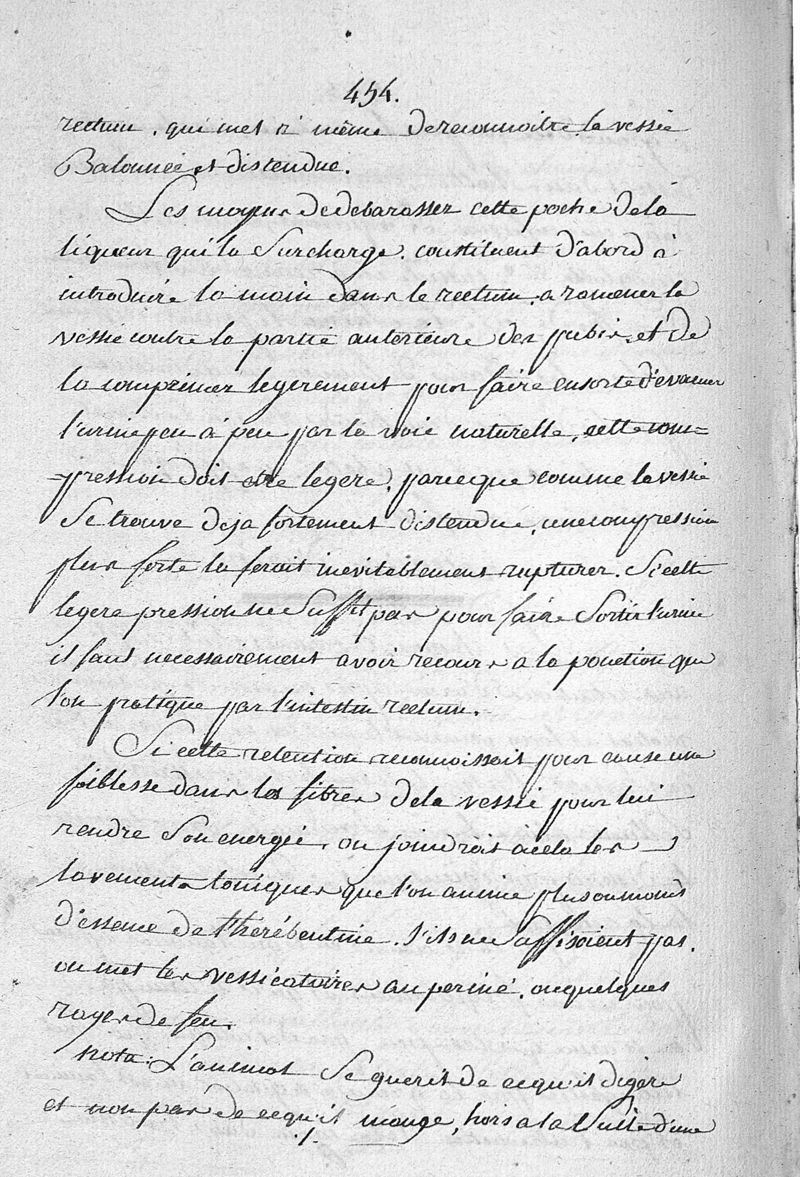 454.
rectum, qui met à même de reconnoitre la vessie
Balonnée et distendue.
Les moyens de debarasser cette poche de la
liqueur qui la Surcharge, constituent d'abord à
introduire la main dans le rectum, a ramener la
vessie contre la partie anterieure des pubis, et de
la comprimer legerement pour faire ensorte d'evacuer
l'urine peu à peu par la voie naturelle, cette com=
=pression doit etre legere, parceque comme la vessie
Se trouve deja fortement distendue, une compression
plus forte la feroit inevitablement rupturer. Si cette
legere pression ne Suffit pas pour faire Sortir l'urine
il faut necessairement avoir recours a la ponction que
l'on pratique par l'intestin rectum.
Si cette retention reconnoissoit pour cause une
foiblesse dans les fibres de la vessie pour lui
rendre Son energie, on joindrai à cela les
lavements toniques que l'on anime plus ou moins
d'essence de therébentine. S'ils ne Suffisoient pas,
on met les vessicatoires au periné, ou quelques
rayes de feu.
Nota: L'animal Se guerit de ce qu'il digere
et non pas de ce qu'il mange, hors a la Suite d'une
./.